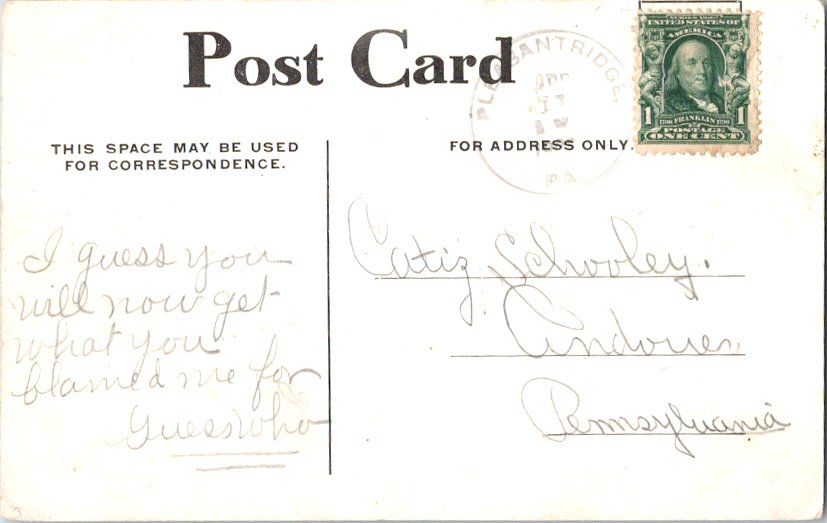 Post Card
THIS SPACE MAY BE USED
FOR CORRESPONDENCE.
FOR ADDRESS ONLY.
PLEASANTRIDGE,
PA.
SERIES 1902
UNITED STATES OF
AMERICA
1 1
1706 FRANKLIN 1790
POSTAGE
ONE CENT
I guess you
will now get
what you
blamed me for
Guess who
Catiz Schooley.
Andover
Pennsylvania